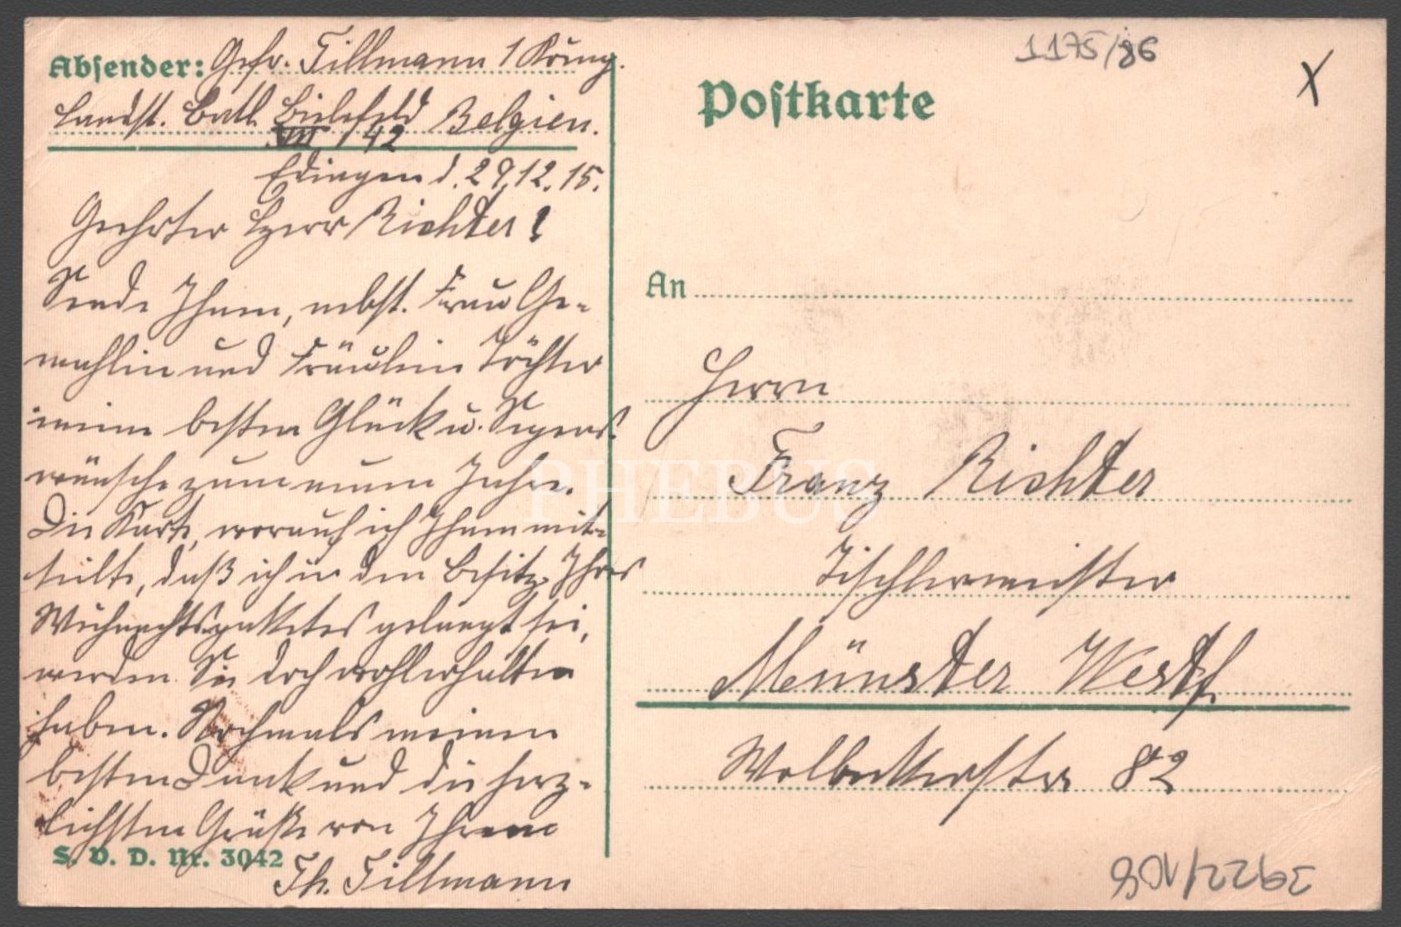 1175/86
X
Absender: Gefr. Tillmann 1 Komp.
Landst. Batl. Bielefeld Belgien.
VII / 42
Edingen d. 29.12.15.
Geehrter Herr Richter!
Sende Ihnen, nebst. Frau Ge-
mahlin und Fräulein Töchter
meine besten Glück u. Segens
wünsche zum neuen Jahre.
Die Karte, worauf ich Ihnen mit-
teilte, daß ich in den Besitz Ihres
Weihnachtspaketes gelangt sei,
werden Sie doch wohl erhalten
haben. Nochmals meinen
besten Dank und die herz-
lichsten Grüße von Ihrem
Th. Tillmann
S. V. D. Nr. 3042
Postkarte
An
Herrn
Franz Richter
Tischlermeister
Münster Westf
Wolbeckerstr 82
PHEBUS